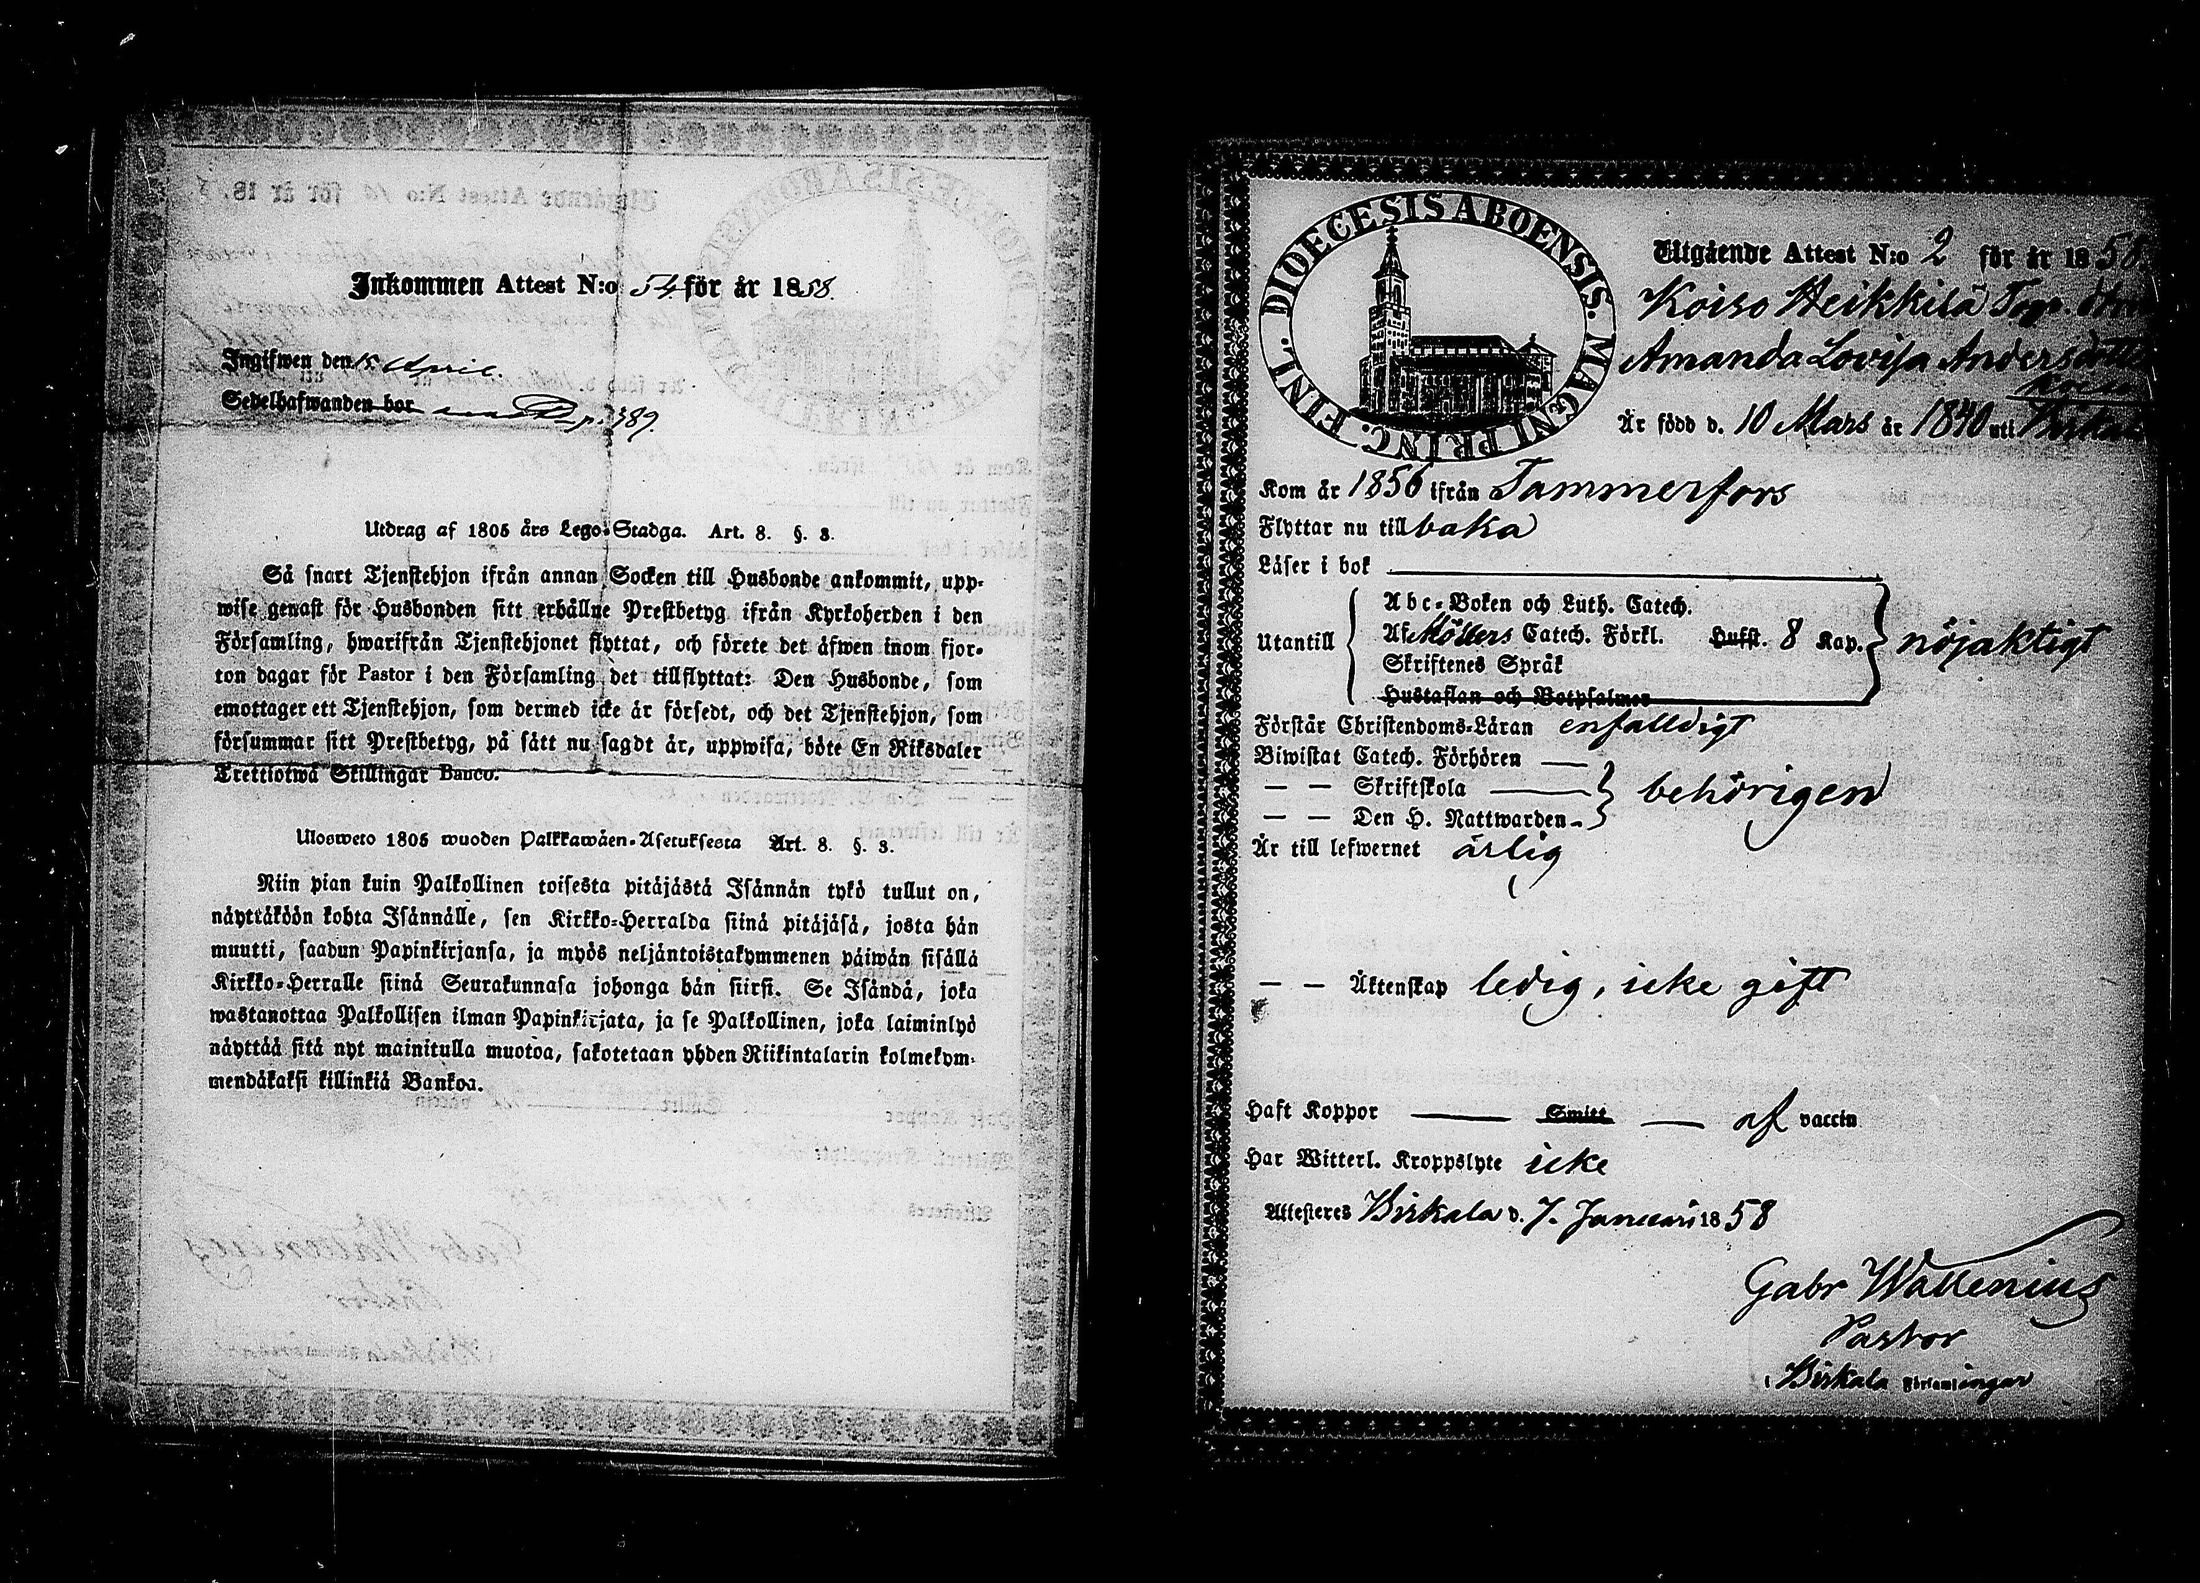 Inkommen Attest N:o 54 för år 1858.
Ingifwen den 15 April.
Sedelhafwanden bor p. 389.
Utdrag af 1805 års Lego-Stadga. Art. 8. §. 3.
Så snart Tjenstehjon ifrån annan Socken till Husbonde ankommit, upp-
wise genast för Husbonden sitt erhållne Prestbetyg ifrån Kyrkoherden i den
Församling, hwarifrån Tjenstehjonet flyttat, och förete det äfwen inom fjor-
ton dagar för Pastor i den Församling det tillflyttat: Den Husbonde, som
emottager ett Tjenstehjon, som dermed icke är försedt, och det Tjenstehjon, som
försummar sitt Prestbetyg, på sätt nu sagdt är, uppwisa, böte En Riksdaler
Trettiotwå Skillingar Banco.
Ulosweto 1805 wuoden Palkkawäen-Asetuksesta Art. 8. §. 3.
Niin pian kuin Palkollinen toisesta pitäjästä Isännän tykö tullut on,
näyttäköön kohta Isännälle, sen Kirkko-Herralda siinä pitäjäsä, josta hän
muutti, saadun Papinkirjansa, ja myös neljäntoistakymmenen päiwän sisällä
Kirkko-Herralle siinä Seurakunnasa johonga hän siirsi. Se Isändä, joka
wastanottaa Palkollisen ilman Papinkirjata, ja se Palkollinen, joka laiminlyö
näyttää sitä nyt mainitulla muotoa, sakotetaan yhden Riikintalarin kolmekym-
mendäkaksi killinkiä Bankoa.
DIOECESIS ABOENSIS. MAGNI PRINC. FINL.
Utgående Attest N:o 2 för år 1858.
Koiso Heikkilä
Amanda Lovisa Andersdotter
Är född d. 10 Mars år 1840 uti Birkala
Kom år 1856 ifrån Tammerfors
Flyttar nu tillbaka
Läser i bok
Utantill
Abc-Boken och Luth. Catech.
Af Möllers Catech. Förkl. Hufst. 8 Kap.
Skriftenes Språk
Hustaflan och Botpsalmer
nöjaktigt
Förstår Christendoms-Läran enfalldigt
Biwistat Catech. Förhören
— — Skriftskola
— — Den H. Nattwarden
behörigen
Är till lefwernet ärlig
— — Äktenskap ledig, icke gift
Haft Koppor — Smitt — af vaccin
Har Witterl. Kroppslyte icke
Attesteres Birkala d. 7. Januari 1858
Gabr Wallenius
Pastor
i Birkala Församlingar